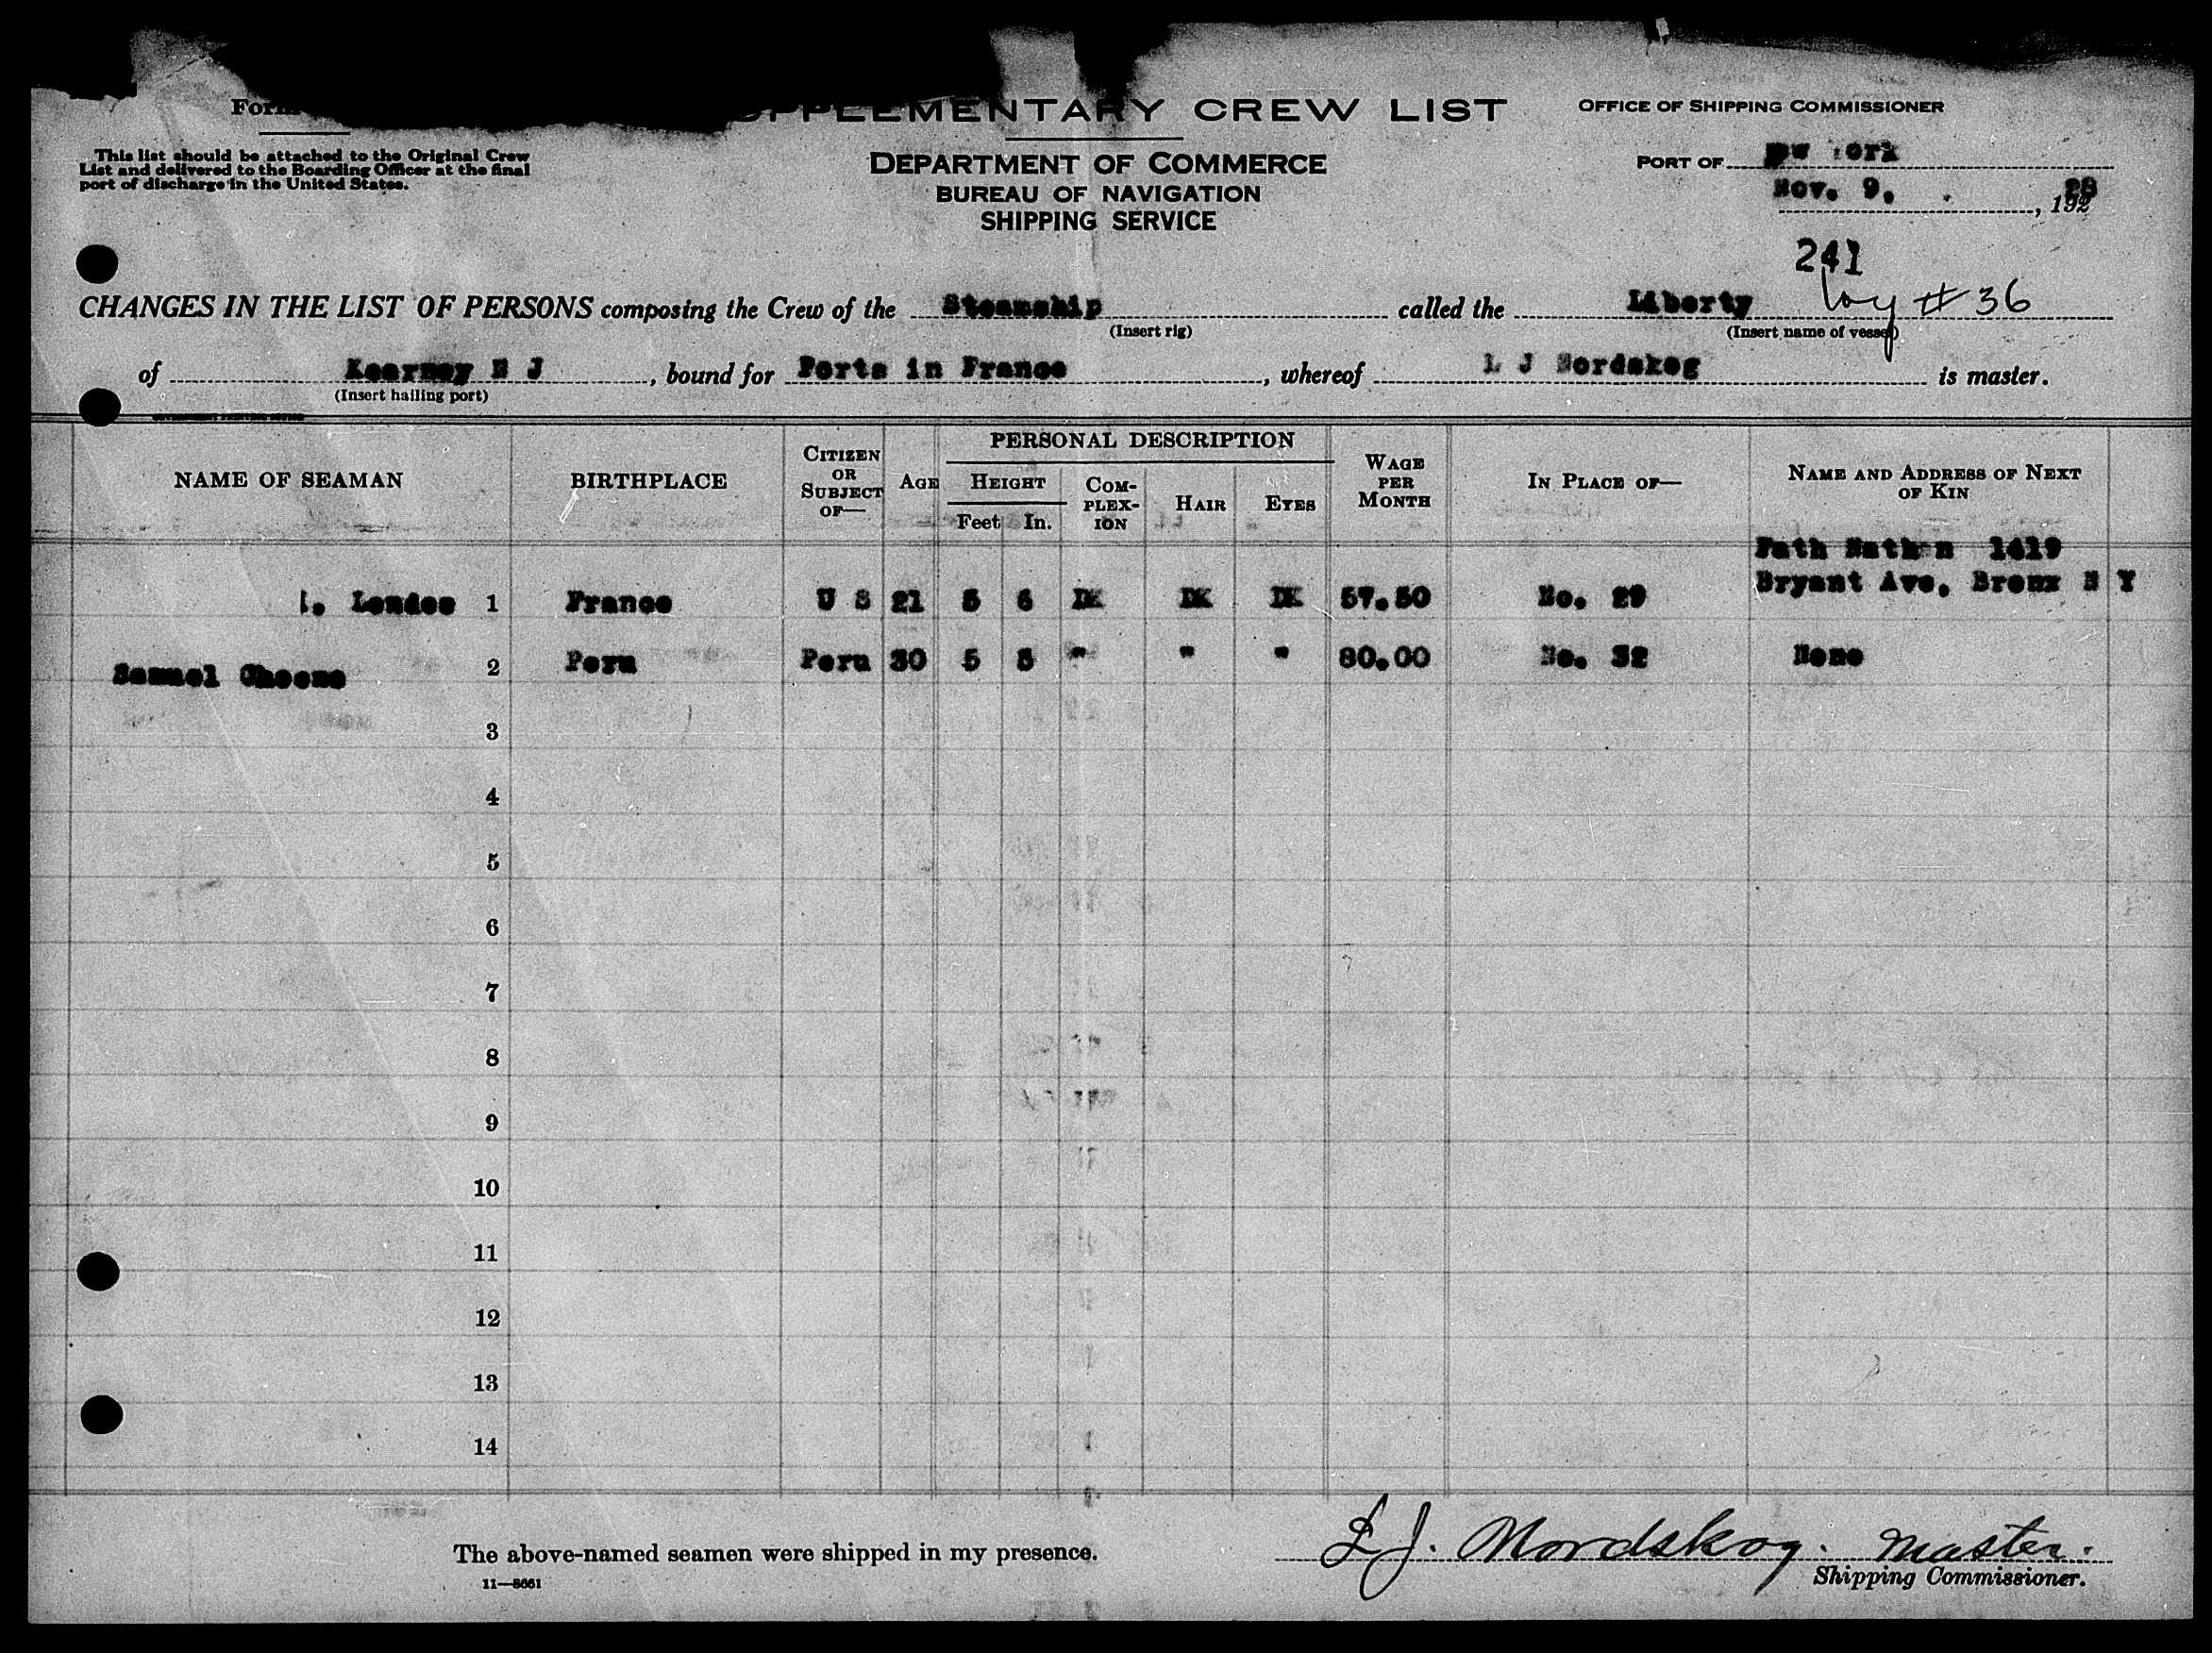 SUPPLEMENTARY CREW LIST
OFFICE OF SHIPPING COMMISSIONER
This list should be attached to the Original Crew
List and delivered to the Boarding Officer at the final
port of discharge in the United States.
DEPARTMENT OF COMMERCE
BUREAU OF NAVIGATION
SHIPPING SERVICE
PORT OF
Nov. 9, , 1928
241
CHANGES IN THE LIST OF PERSONS composing the Crew of the Steamship called the Liberty Voy # 36
(Insert rig) (Insert name of vessel)
of Kearney N J, bound for Ports in France, whereof L J Nordskog is master.
(Insert hailing port)
NAME OF SEAMAN BIRTHPLACE CITIZEN OR SUBJECT OF— AGE PERSONAL DESCRIPTION HEIGHT Feet In. COMPLEXION HAIR EYES WAGE PER MONTH IN PLACE OF— NAME AND ADDRESS OF NEXT OF KIN
1419
Bryant Ave, Bronx N Y
1 France U S 21 5 6 DK DK DK 57.50 No. 29
Samuel 2 Peru Peru 30 5 5 " " " 80.00 No. 32 None
3
4
5
6
7
8
9
10
11
12
13
14
The above-named seamen were shipped in my presence.
L J. Nordskog. Master.
Shipping Commissioner.
11—8661